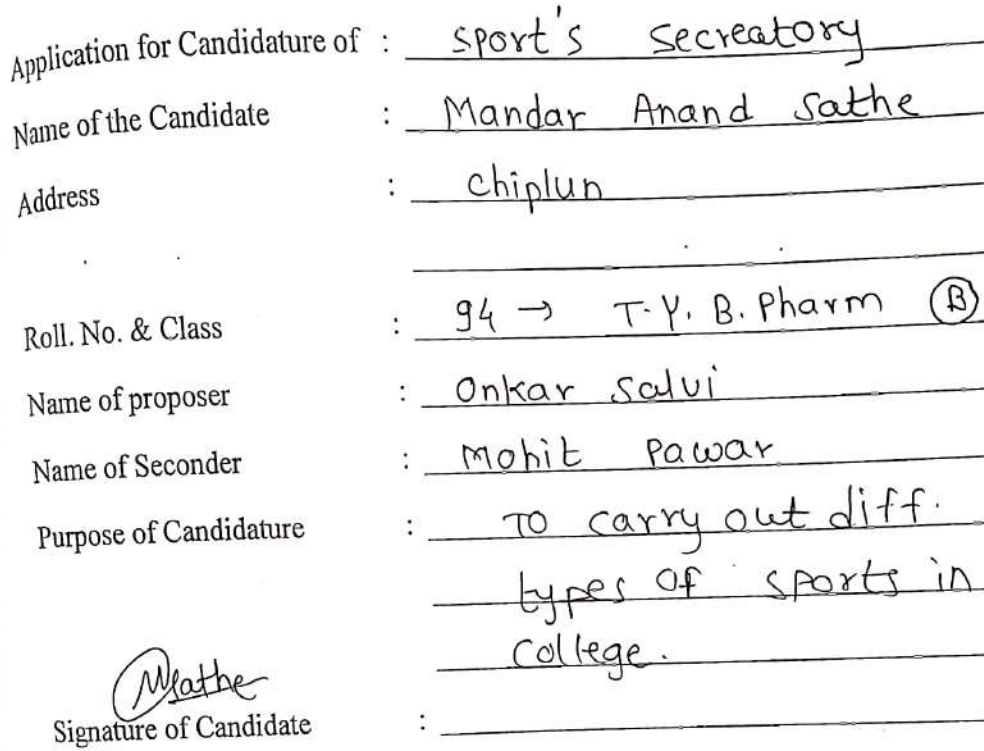 Application for Candidature of : sport's secreatory
Name of the Candidate : Mandar Anand Sathe
Address : Chiplun
Roll. No. & Class : 94 → T.Y. B. Pharm (B)
Name of proposer : Onkar Salvi
Name of Seconder : Mohit Pawar
Purpose of Candidature : To carry out diff.
types of sports in
college.
MSathe
Signature of Candidate :